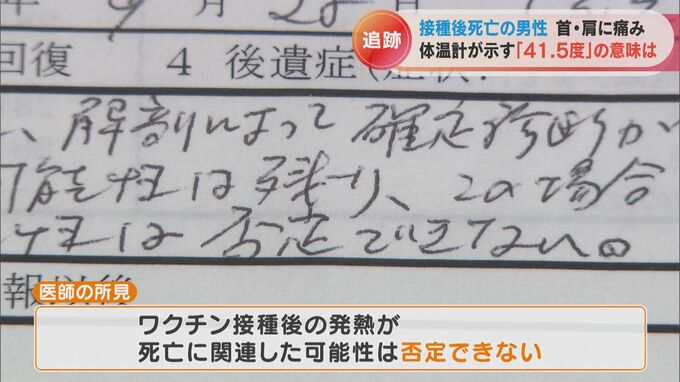 追跡
接種後死亡の男性 首・肩に痛み
体温計が示す「41.5度」の意味は
年 9月 28
回復 4 後遺症(症状:
、解剖によって確定診断が
可能性は残り、この場合
性は否定できない。
報以後
医師の所見
ワクチン接種後の発熱が
死亡に関連した可能性は否定できない